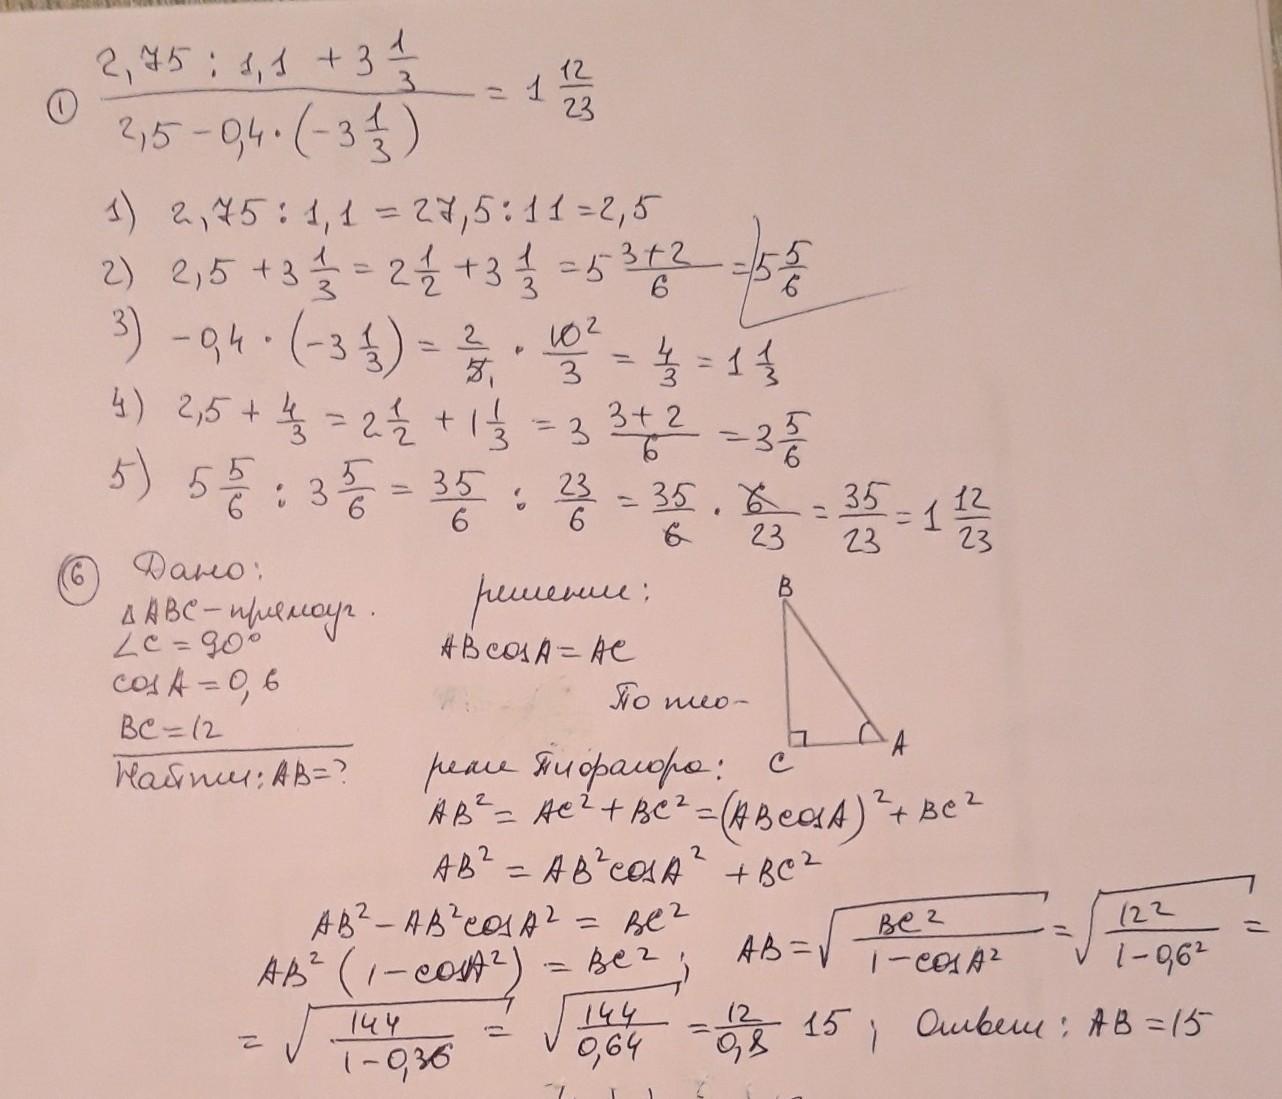 ① (2,75 : 1,1 + 3 1/3) / (2,5 - 0,4 · (-3 1/3)) = 1 12/23
1) 2,75 : 1,1 = 27,5 : 11 = 2,5
2) 2,5 + 3 1/3 = 2 1/2 + 3 1/3 = 5 (3+2)/6 = 5 5/6
3) -0,4 · (-3 1/3) = 2/5 1 · 10 2/3 = 4/3 = 1 1/3
4) 2,5 + 4/3 = 2 1/2 + 1 1/3 = 3 (3+2)/6 = 3 5/6
5) 5 5/6 : 3 5/6 = 35/6 : 23/6 = 35/6 · 6/23 = 35/23 = 1 12/23
⑥ Дано:
∆ABC - прямоуг.
∠C = 90°
cosA = 0,6
BC = 12
Найти: AB = ?
решение:
ABcosA = AC
По тео-
реме Пифагора:
B
C
A
AB² = AC² + BC² = (ABcosA)² + BC²
AB² = AB²cosA² + BC²
AB² - AB²cosA² = BC²
AB² (1 - cosA²) = BC² ; AB = √(BC²/(1 - cosA²)) = √(12²/(1 - 0,6²)) =
= √(144/(1 - 0,36)) = √(144/0,64) = 12/0,8 15 ; Ответ: AB = 15